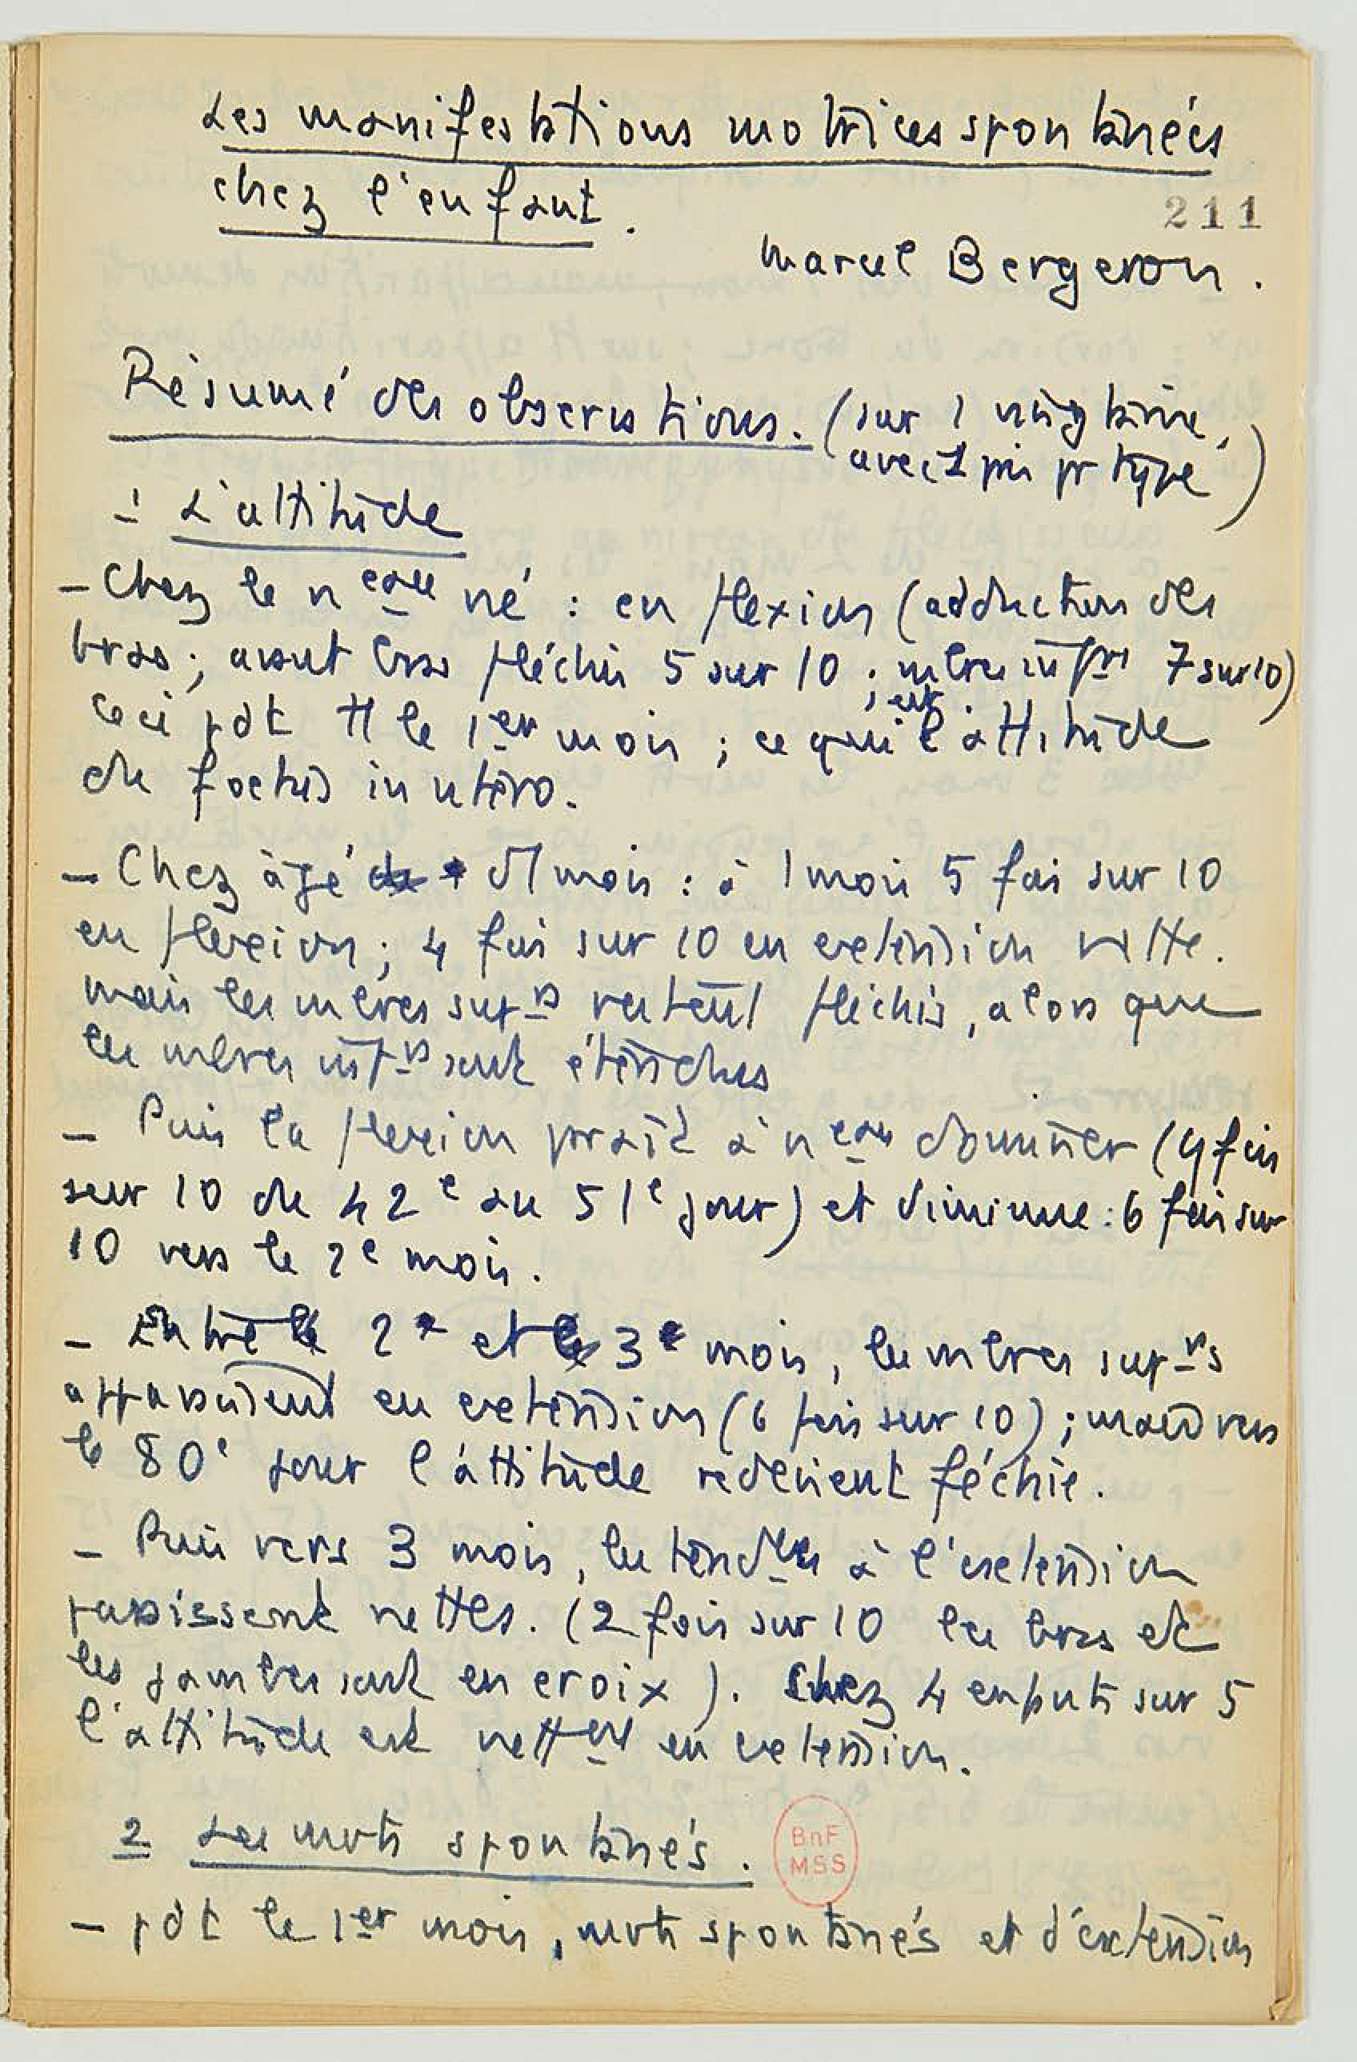 Les manifestations motrices spontanées
chez l'enfant.
211
Marcel Bergeron.
Résumé des observations. (sur 1 vingtaine,
avec 1 pr type)
1 L'attitude
- Chez le n eau né : en flexion (adduction des
bras; avant bras fléchis 5 sur 10; mbres inf rs 7 sur 10)
Ceci pdt tt le 1er mois; ce qui est l'attitude
du foetus in utero.
- Chez âgé d'1 mois : à 1 mois 5 fois sur 10
en flexion; 4 fois sur 10 en extension nette.
mais les mbres sup rs restent fléchis, alors que
les mbres inf rs sont étendus
- Puis la flexion paraît à n eau dominer (9 fois
sur 10 du 42e au 51e jour) et diminue : 6 fois sur
10 vers le 2e mois.
- Entre le 2e et le 3e mois, les mbres sup rs
apparaissent en extension (6 fois sur 10); mais vers
le 80e jour l'attitude redevient fléchie.
- Puis vers 3 mois, les tend ces à l'extension
paraissent nettes. (2 fois sur 10 les bras et
les jambes sont en croix). Chez 4 enfants sur 5
l'attitude est nett ent en extension.
2 Les mvts spontanés.
BnF
MSS
- pdt le 1er mois, mvts spontanés et d'extension